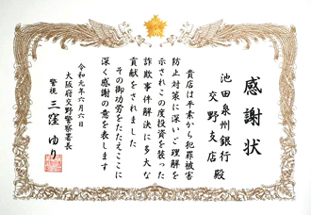 感謝状
池田泉州銀行
交野支店 殿
貴店は平素から犯罪被害
防止対策に深いご理解を
示されこの度投資を装った
詐欺事件解決に多大な
貢献をされました
その御功労をたたえここに
深く感謝の意を表します
令和元年六月六日
大阪府交野警察署長
警視 三窪 ゆり